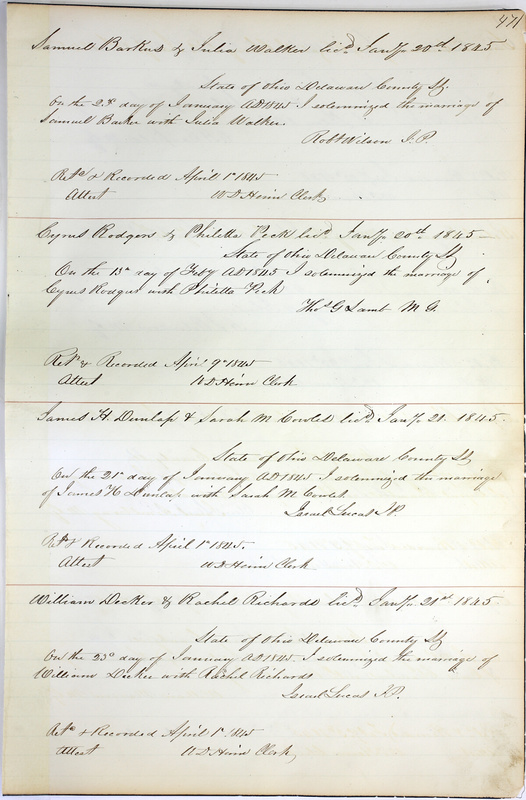 471
Samuel Barkus & Julia Walker licd Jany 20th 1845
State of Ohio Delaware County Ss
On the 23d day of January AD 1845 I solemnized the marriage of
Samuel Barker with Julia Walker.
Robt Wilson J. P.
Retd & Recorded April 1st 1845
Attest W D Heim Clerk
Cyrus Rodgers & Philetta Peck licd Jany 20th 1845
State of Ohio Delaware County Ss
On the 13th day of Feby AD 1845 I solemnized the marriage of
Cyrus Rodgers with Philetta Peck
Thos G Lamb M G.
Retd & Recorded April 9th 1845
Attest W D Heim Clerk
James H. Dunlap & Sarah M Cowles licd Jany 21 1845
State of Ohio Delaware County Ss
On the 21st day of January AD 1845 I solemnized the marriage
of James H Dunlap with Sarah M Cowles
Israel Lucas JP.
Retd & Recorded April 1st 1845.
Attest W D Heim Clerk
William Decker & Rachel Richards licd Jany 21st 1845
State of Ohio Delaware County Ss
On the 23d day of January AD 1845. I solemnized the marriage of
William Decker with Rachel Richards
Israel Lucas JP.
Retd & Recorded April 1st 1845
Attest W D Heim Clerk